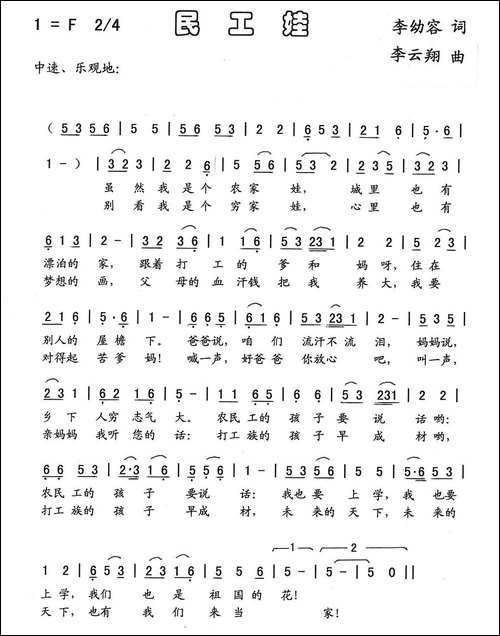 1 = F 2/4
民工娃
李幼容 词
李云翔 曲
中速、乐观地:
( 5 3 5 6 | 5 5 | 5 6 5 3 | 2 2 | 6 1 6 5 3 | 2 1 6 | 5 · 6 |
1 - ) | 3 2 3 | 2 2 6 | 5 5 6 | 5 5 3 2 | 2 3 5 | 3 2 3 |
虽然我是个农家娃, 城里也有
别看我是个穷家娃, 心里也有
6 1 3 | 2 - | 3 2 3 6 | 1 1 6 | 5 3 2 3 1 | 2 2 | 5 2 3 |
漂泊的家, 跟着打工的爹和妈呀, 住在
梦想的画, 父母的血汗钱把我养大, 我要
2 1 6 | 5 · 6 | 1 - | 6 5 6 5 | 1 6 1 | 5 3 2 3 1 | 2 - | 5 3 5 |
别人的屋檐下。爸爸说, 咱们流汗不流泪, 妈妈说,
对得起苦爹妈! 喊一声, 好爸爸你放心吧, 叫一声,
2 3 1 | 6 2 1 6 | 2 - | 1 1 6 5 | 6 1 6 | 5 3 5 2 3 1 | 2 2 |
乡下人穷志气大。农民工的孩子要说话哟:
亲妈妈我听您的话: 打工族的孩子早成材哟,
6 6 5 3 | 2 · 3 1 6 | 5 5 6 | 1 - | 5 3 5 | 2 1 2 | 5 5 · 6 5 3 |
农民工的孩子要说话: 我也要上学, 我也要
打工族的孩子早成材, 未来的天下, 未来的
1 2 | 6 5 3 | 2 3 1 | 6 5 5 6 | 5 - | 5 - | 5 0 ||
上学, 我们也是祖国的花!
天下, 也有我们来当家!